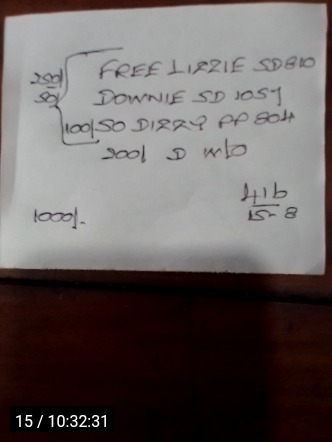 250/ FREE LIZZIE SD 810
50/ DOWNIE SD 1057
100/ SO DIZZY PP 804
200/ D W/O
416
1000/- 15-8
15 / 10:32:31